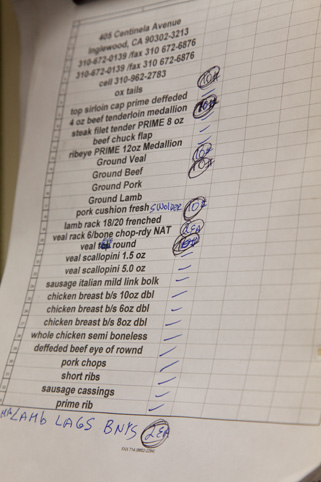 405 Centinela Avenue
Inglewood, CA 90302-3213
310-672-0139 /fax 310 672-6876
310-672-0139 /fax 310 672-6876
cell 310-962-2783
ox tails 10#
top sirloin cap prime deffeded
4 oz beef tenderloin medallion
steak filet tender PRIME 8 oz
beef chuck flap
ribeye PRIME 12oz Medallion
Ground Veal 10#
Ground Beef 10#
Ground Pork
Ground Lamb
pork cushion fresh SHOLDER 10#
lamb rack 18/20 frenched
veal rack 6/bone chop-rdy NAT 2EA
veal round
veal scallopini 1.5 oz
veal scallopini 5.0 oz
sausage italian mild link bolk
chicken breast b/s 10oz dbl
chicken breast b/s 6oz dbl
chicken breast b/s 8oz dbl
whole chicken semi boneless
deffeded beef eye of rownd
pork chops
short ribs
sausage cassings
prime rib
LAMB LAGS BNYS 2EA